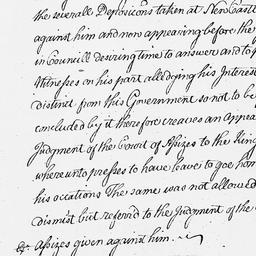 the severall Deposicons taken at New Castle
against him and now appearing before the
in Councill desiring time to answer and to p
Witnesses on his part alledging his Interest
distinct from this Government so not to be
concluded by it therefore craves an Appea
Judgment of the Court of Assizes to the King
whereunto presses to have leave to goe hom
his occations The same was not allowed
dismist but referrd to the Judgment of the
Assizes given against him.